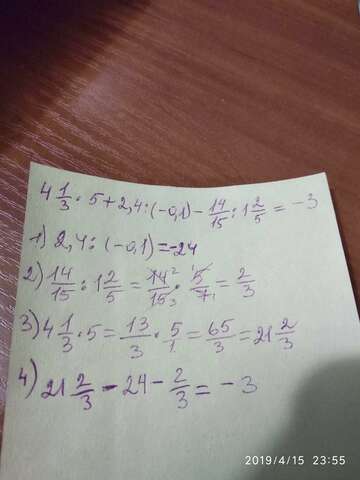 4 1/3 · 5 + 2,4 : (-0,1) - 14/15 : 1 2/5 = -3
1) 2,4 : (-0,1) = -24
2) 14/15 : 1 2/5 = 14 2/15 3 · 5 1/7 1 = 2/3
3) 4 1/3 · 5 = 13/3 · 5/1 = 65/3 = 21 2/3
4) 21 2/3 - 24 - 2/3 = -3
2019/4/15 23:55